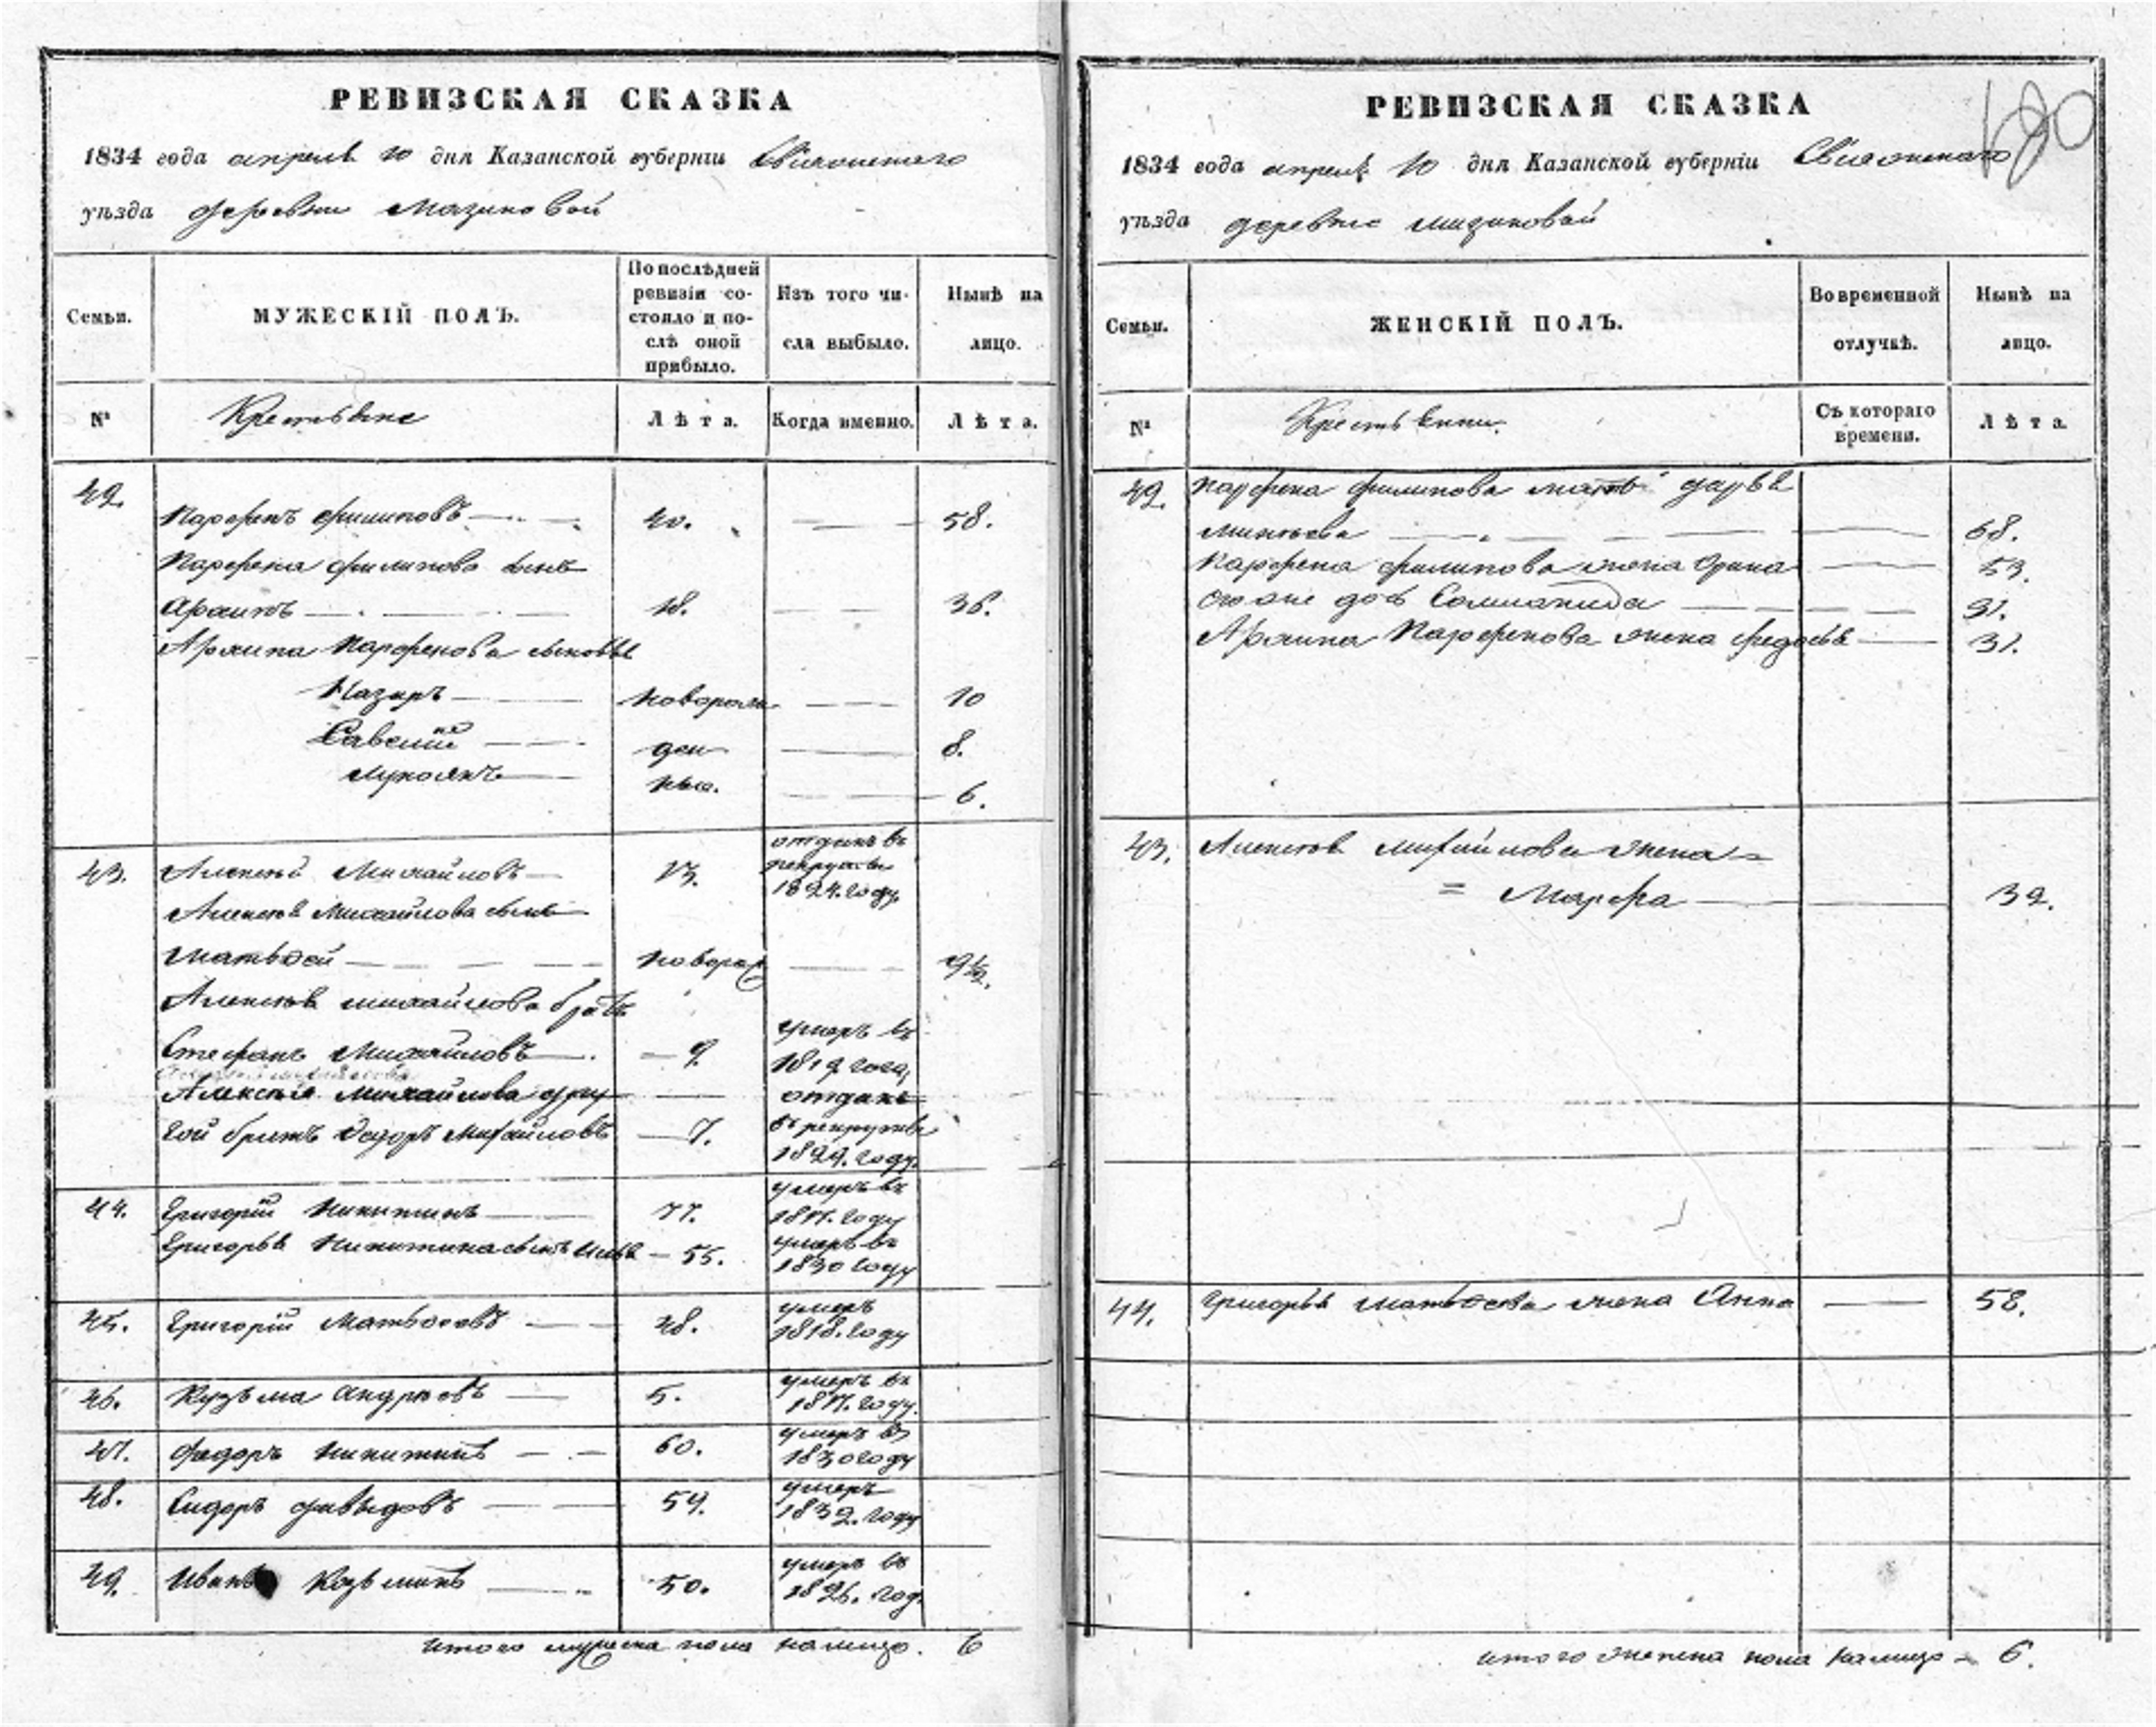 РЕВИЗСКАЯ СКАЗКА
1834 года апреля 10 дня Казанской губернiи Свiяжскаго
уѣзда деревни Мазиковой
Семьи.
МУЖЕСКIЙ ПОЛЪ.
По послѣдней
ревизiи со-
стояло и по-
слѣ оной
прибыло.
Изъ того чи-
сла выбыло.
Нынѣ на
лицо.
№
Крестьяне
Лѣта.
Когда именно.
Лѣта.
42.
Парфенъ филиповъ 40. 58.
Парфена филипова сынъ
Архипъ 18. 36.
Архипа Парфенова сыновья
Назаръ новорож 10
Савелiй ден 8.
Лукоянъ ные. 6.
43. Алексей Михайловъ 13. отданъ въ рекруты 1824. году.
Алексея Михайлова сынъ
Матвѳей новорож 9½.
Алексея михайлова братъ
Стефанъ Михайловъ 9 умеръ въ 1819 года,
Алексѣя Михайлова дру 
гой братъ Ѳедоръ Михайловъ 7. отданъ въ рекруты 1829. году.
44. Григорiй Никитинъ 77. умеръ въ 1817. году
Григорья Никитина сынъ Илья 55. умеръ въ 1830 году
45. Григорiй Матвѳеевъ 48. умеръ 1818. году
46. Кузьма Андреевъ 5. умеръ въ 1817. году.
47. федоръ Никитинъ 60. умеръ въ 1830 году
48. Сидоръ давыдовъ 59. умеръ 1832. году
49. Иванъ Козьминъ 50. умеръ въ 1826. год.
итого мужеска пола налицо. 6
РЕВИЗСКАЯ СКАЗКА
1834 года апреля 10 дня Казанской губернiи Свiяжскаго
уѣзда деревне мазиковой
Семьи.
ЖЕНСКIЙ ПОЛЪ.
Во временной
отлучкѣ.
Нынѣ на
лицо.
№
Крестьянки.
Съ котораго
времени.
Лѣта.
42. Парфена филипова мать дарья
68.
Парфена филипова жена Орина 53.
его же дочь Соломанида 21.
Архипа Парфенова жена федосья 31.
43. Алексея михайлова жена =
= Марфа 32.
44. Григорья матвѳева жена Анна 58.
итого женска пола налицо 6.